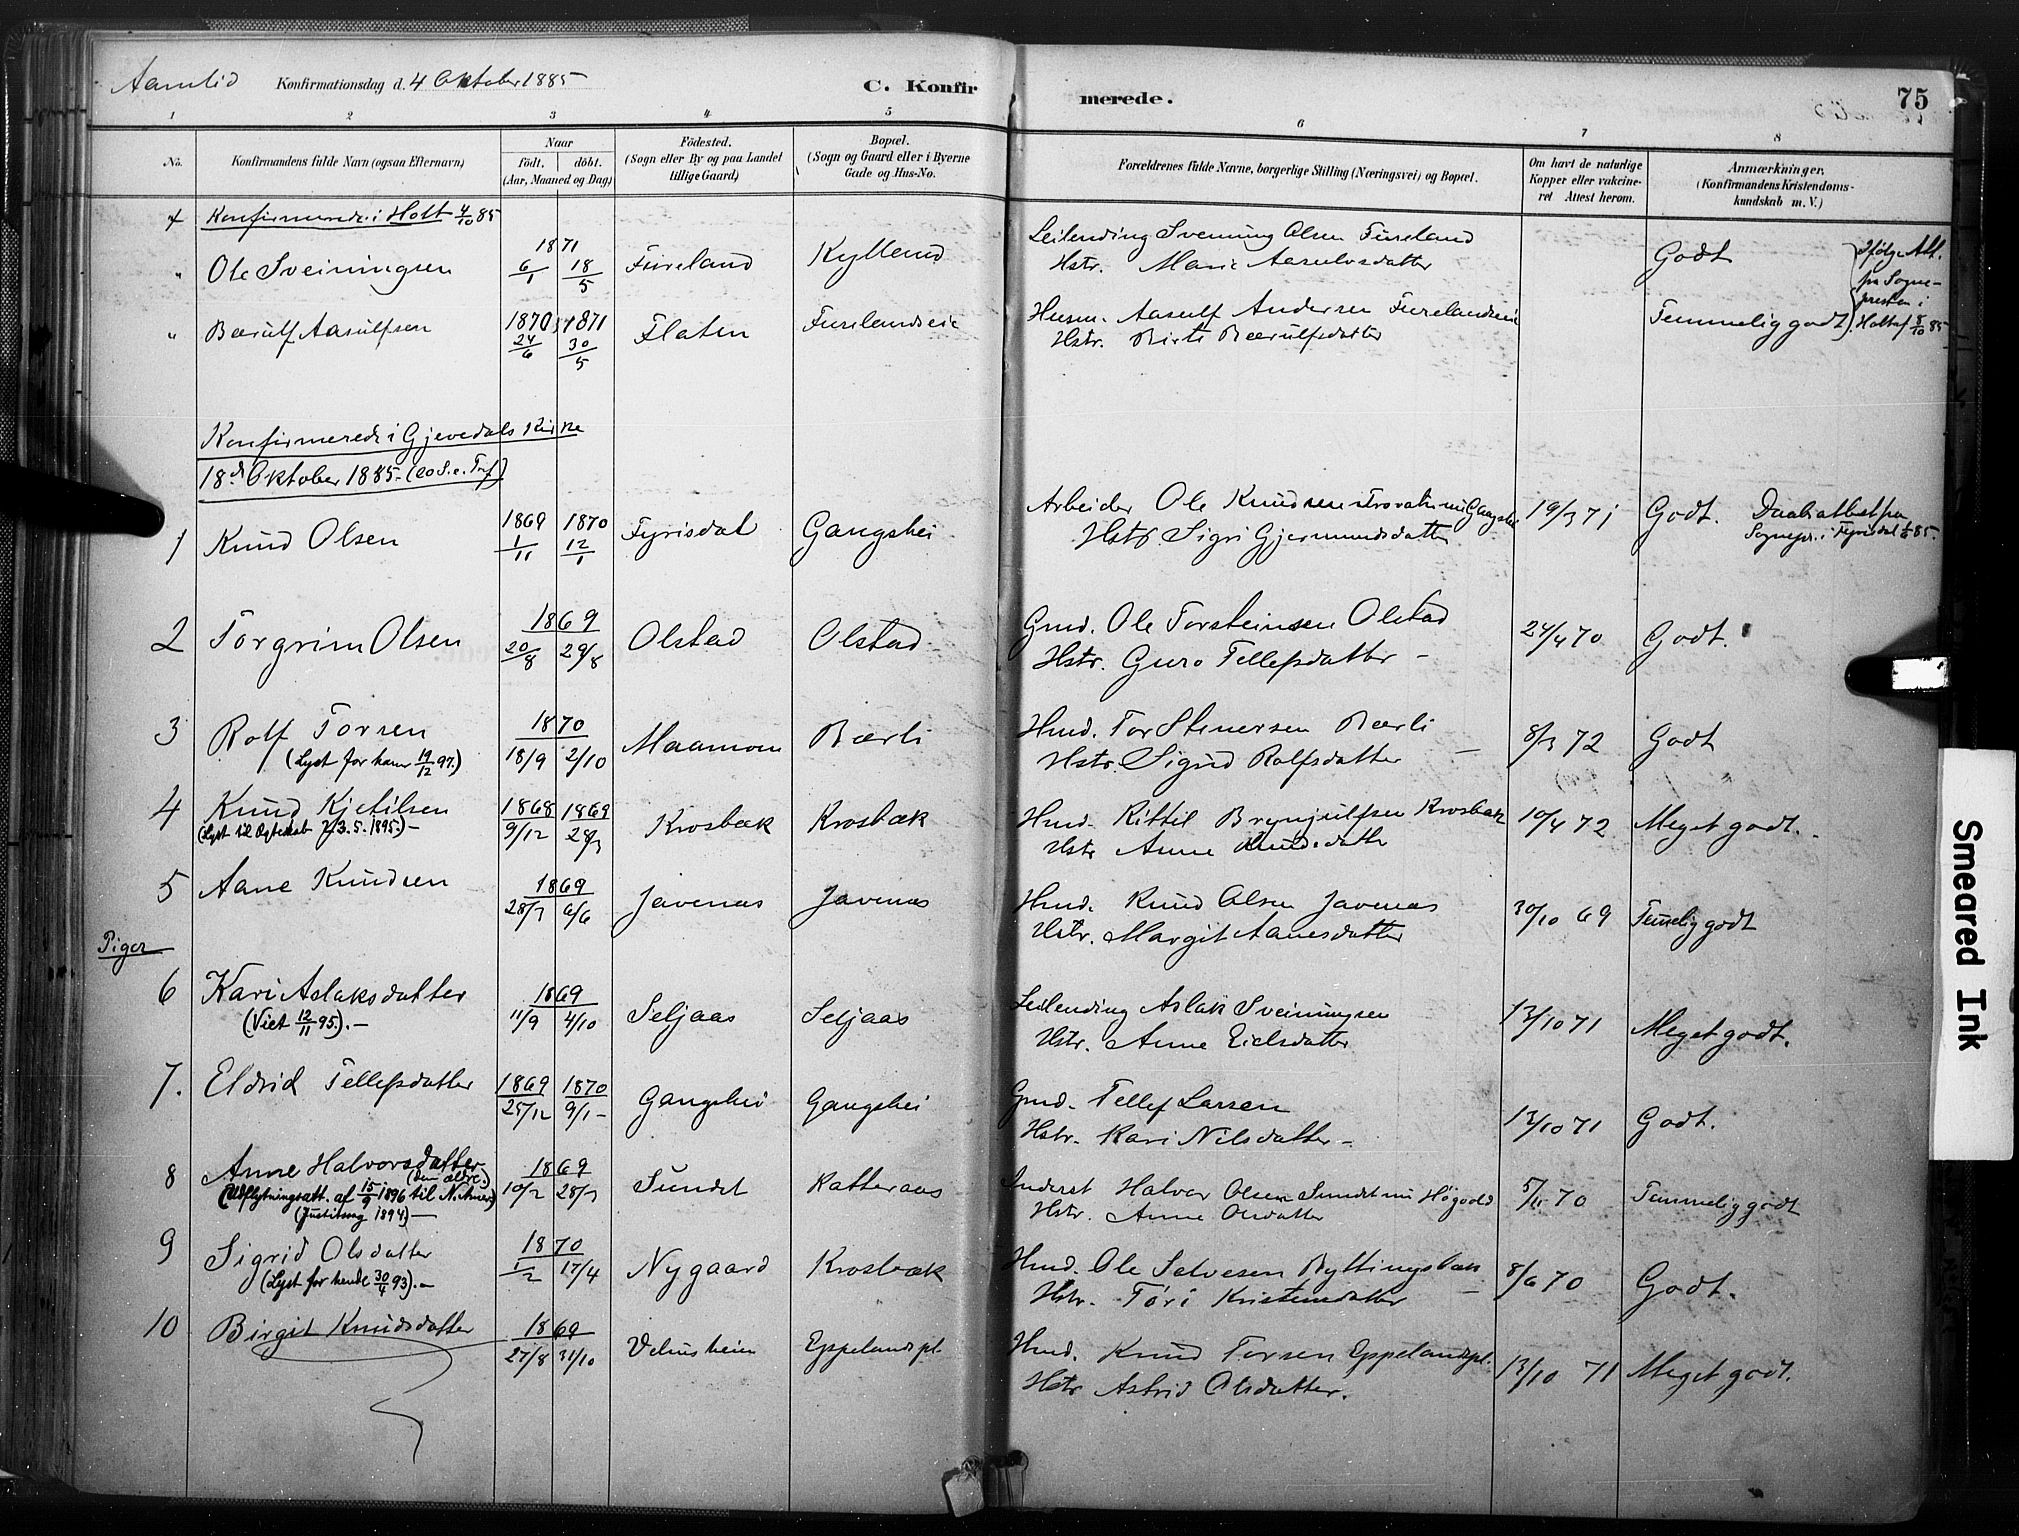 Aamlid Konfirmationsdag d. 4 Oktober 1885 C. Konfirmerede. 75
1 2 3 4 5 6 7 8
No. Konfirmandens fulde Navn (ogsaa Efternavn)
Naar
födt. döbt.
(Aar, Maaned og Dag)
Födested.
(Sogn eller By og paa Landet
tillige Gaard)
Bopæl.
(Sogn og Gaard eller i Byerne
Gade og Hus-No.
Forældrenes fulde Navne, borgerlige Stilling (Næringsvei) og Bopæl.
Om havt de naturlige
Kopper eller vakcine-
ret Attest herom.
Anmærkninger.
(Konfirmandens Kristendoms-
kundskab m. V.)
Konfirmerede i Holt 4/10 85
" Ole Sveiningsen 1871 6/1 18/5 Fureland Kyllend
Leilending Svenning Olsen Fureland
Hstr. Marie Aasulvsdatter
Godt
Ifølge Att.
fra Sogne-
presten i
Holt af 8/10 85
" Bærulf Aasulfsen 1870 24/6 1871 30/5 Flaten Furelandseie
Husm. Aasulf Andersen Furelandseie
Hstr. Birte Bærulfsdatter
Temmelig godt
Konfirmerede i Gjevedals Kirke
18de Oktober 1885 - (20 S. e. Tref)
1 Knud Olsen 1869 1/11 1870 12/1 Fyrisdal Gangshei
Arbeider Ole Knudsen
Hstr. Sigri Gjermundsdatter
19/3 71 Godt. Daabsattest fra
Sognepr. i Fyrisdal 85.
2 Torgrim Olsen 1869 20/8 29/8 Olstad Olstad
Gmd. Ole Torsteinsen Olstad
Hstr. Guro Tellefsdatter -
24/4 70 Godt.
3 Rolf Torsen 1870 18/9 2/10 Maamoen Bærli
(Lyst for ham 19/12 97.)
Hmd. Tor Stenersen Bærli
Hstr. Sigrid Rolfsdatter -
8/3 72 Godt
4 Knud Kjetilsen 1868 9/12 1869 28/3 Krosbæk Krosbæk
(Lyst til Ægteskab 3.5.1895.) -
Hmd. Kittil Brynjulfsen Krosbæk
Hstr Anne Knudsdatter
10/4 72 Meget godt.
5 Aane Knudsen 1869 28/3 6/6 Javenas Javenas
Hmd. Knud Olsen Javenas
Hstr. Margit Aanesdatter
30/10 69 Temelig godt
Piger
6 Kari Aslaksdatter 1869 11/9 4/10 Seljaas Seljaas
(Viet 12/11 95). -
Leilending Aslak Sveinungsen
Hstr. Anne Eielsdatter
13/10 71 Meget godt.
7. Eldrid Tellefsdatter 1869 25/12 1870 9/1 - Gangshei Gangshei
Gmd. Tellef Larsen
Hstr. Kari Nilsdatter -
13/10 71 Godt.
8 Anne Halvorsdatter 1869 10/2 28/3 Sundet Katteraas
(den ældre.)
(Udflytningsatt. af 15/9 1896 til N. Amer.)
Inderst Halvor Olsen Sundet nu Høgvold
Hstr. Anne Olsdatter
5/11 70 Temmelig godt
9 Sigrid Olsdatter 1870 1/2 17/4 Nygaard Krosbæk
(Lyst for hende 30/4 93). -
Hmd. Ole Salvesen
Hstr. Tøri Kristensdatter -
8/6 70 Godt.
10 Birgit Knudsdatter 1869 27/8 31/10 Velusheien Eppelandspl.
Hmd. Knud Torsen Eppelandspl.
Hstr Astrid Olsdatter.
13/10 71 Meget godt.
Smeared Ink